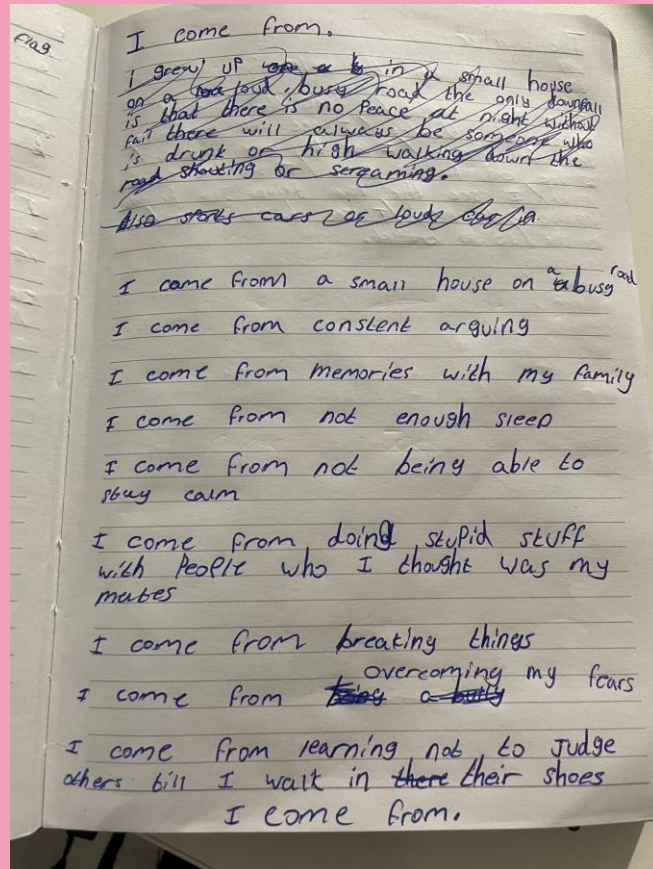 Flag
I come from.
I grew up in a small house
on a loud, busy road the only downfall
is that there is no Peace at night without
fail there will always be someone who
is drunk or high walking down the
road shouting or screaming.
Also sports cars or loud
I come from a small house on a busy road
I come from constent arguing
I come from memories with my family
I come from not enough sleep
I come from not being able to
stay calm
I come from doing stupid stuff
with People who I thought was my
mates
I come from breaking things
overcoming my fears
I come from being a bully
I come from learning not to Judge
others till I walk in there their shoes
I come from.